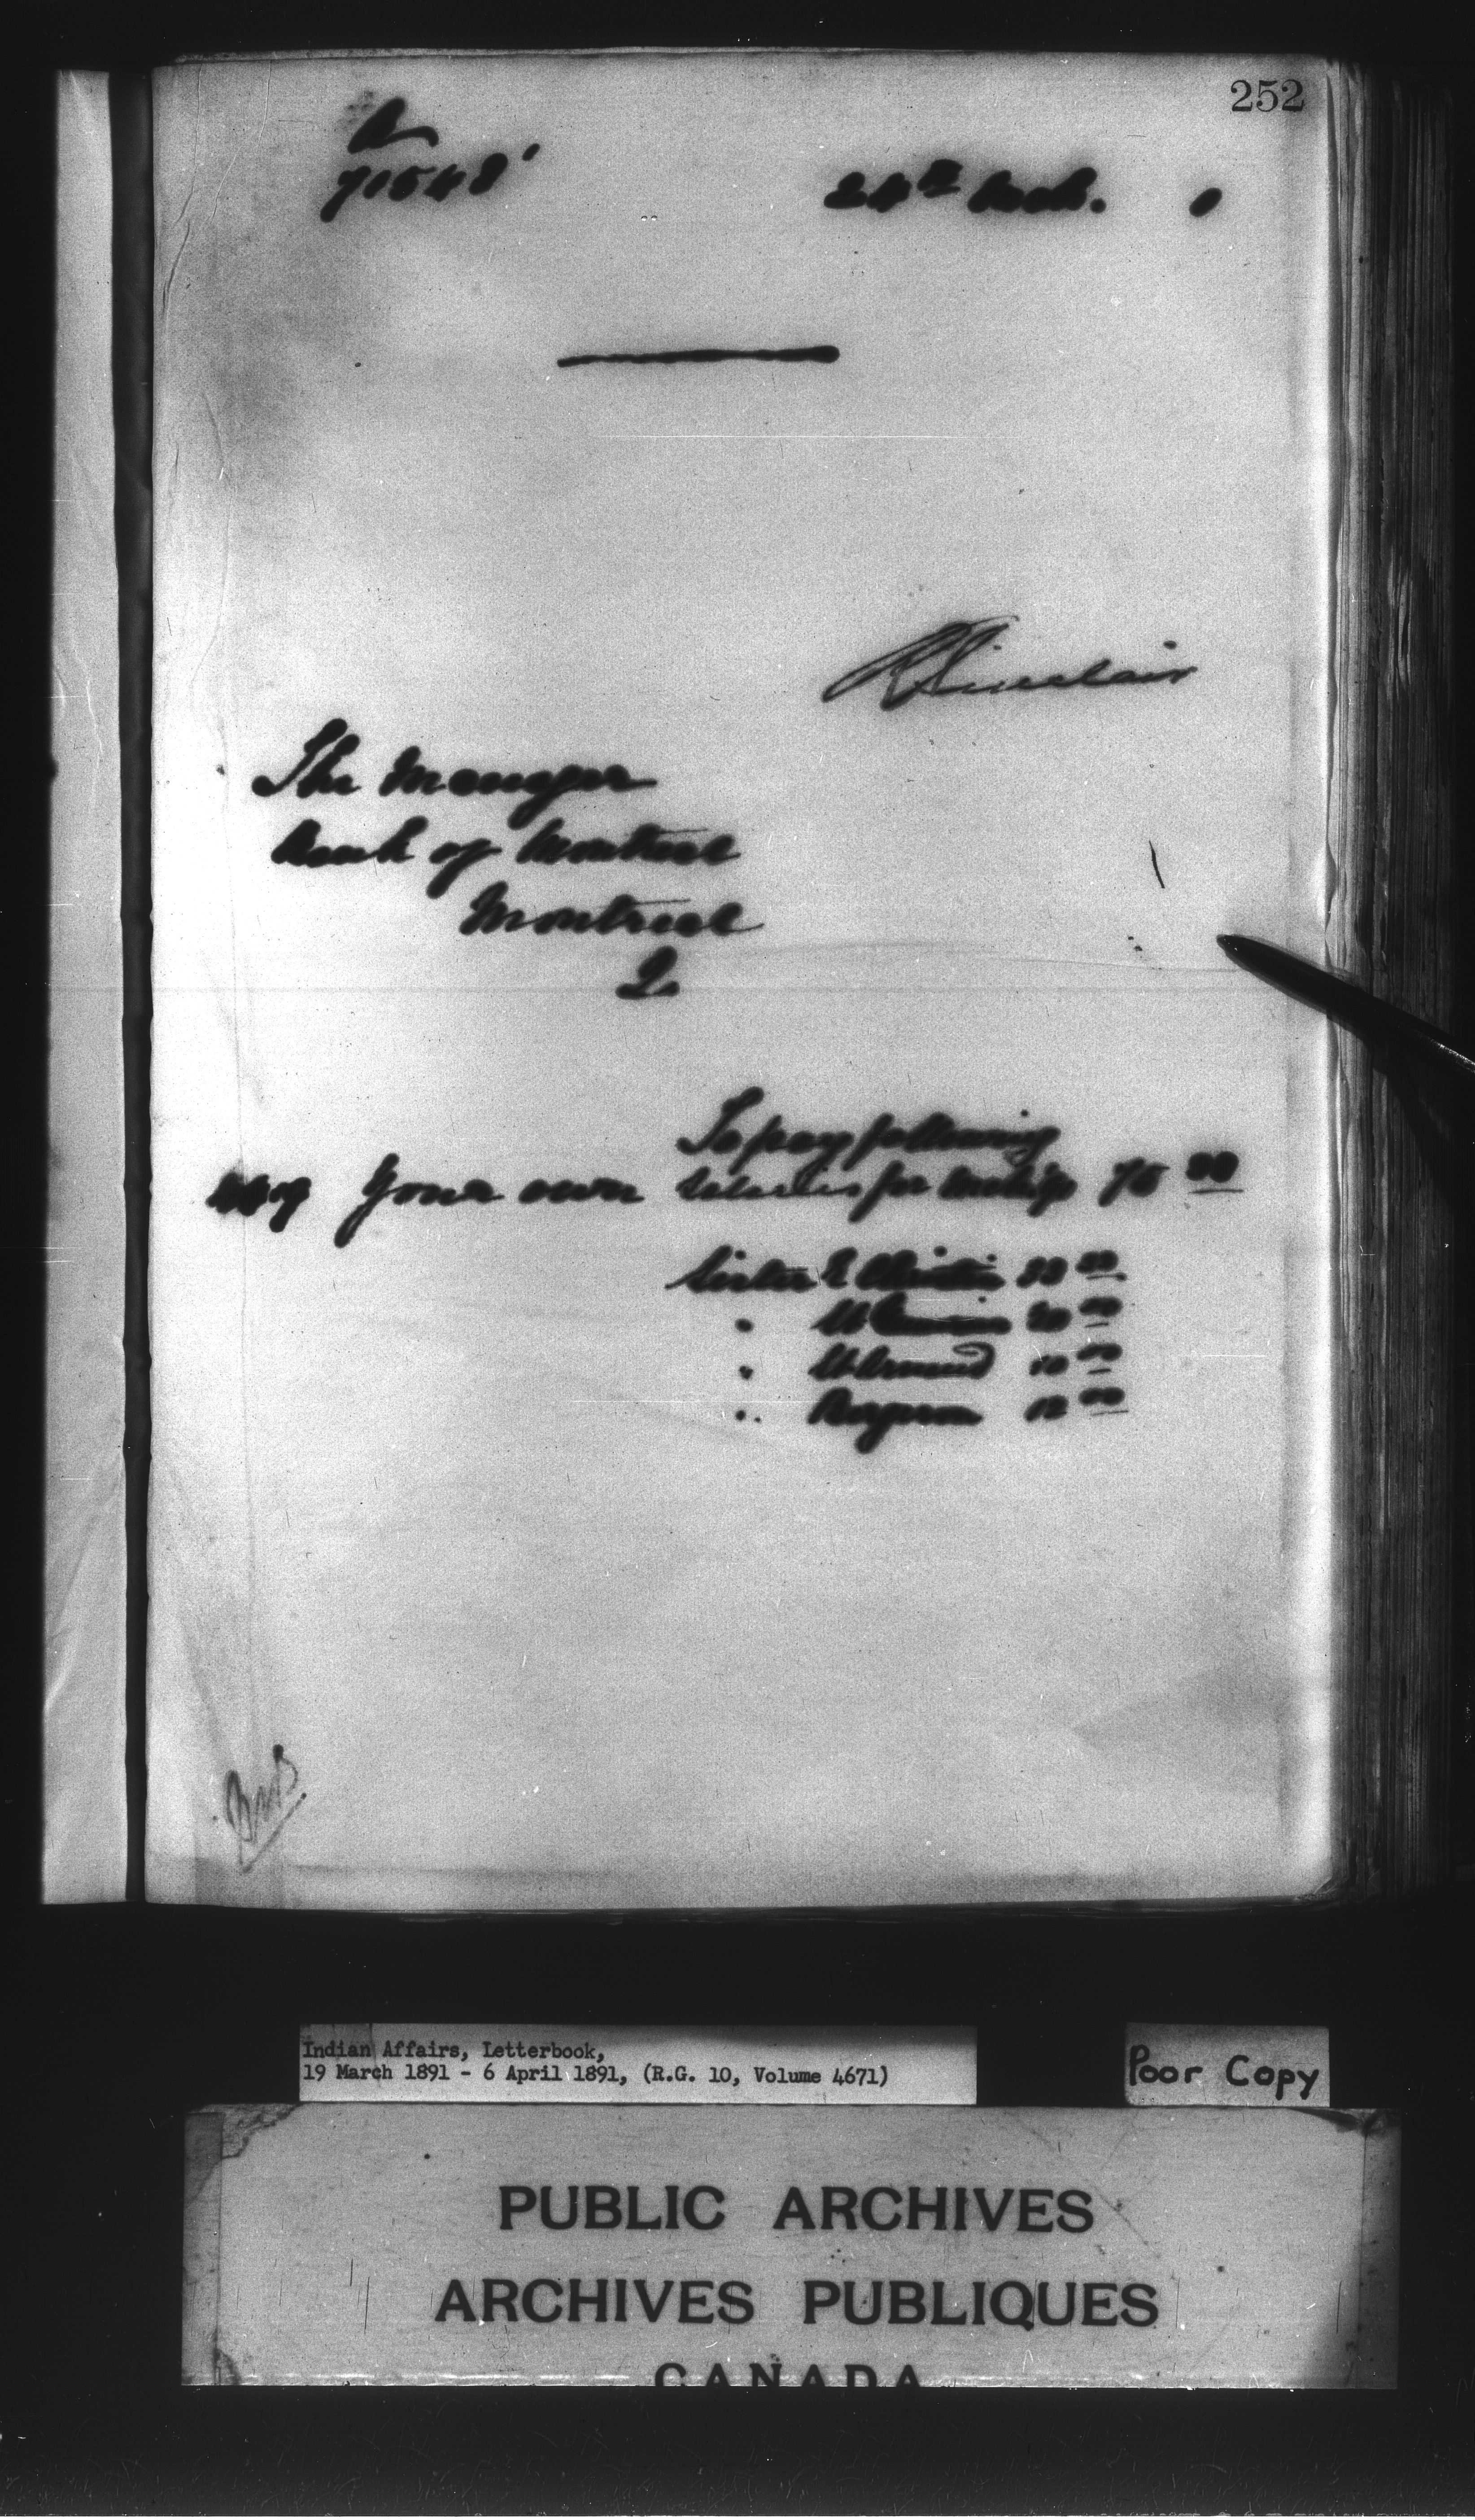 252
71548
24th Mch.
R Sinclair
The Manager
Bank of Montreal
Montreal
Q.
To pay following
Your own Salaries for 75 00
Sister 00
" St 20 00
" St 10 00
" 12 00
Indian Affairs, Letterbook,
19 March 1891 - 6 April 1891, (R.G. 10, Volume 4671)
Poor Copy
PUBLIC ARCHIVES
ARCHIVES PUBLIQUES
CANADA